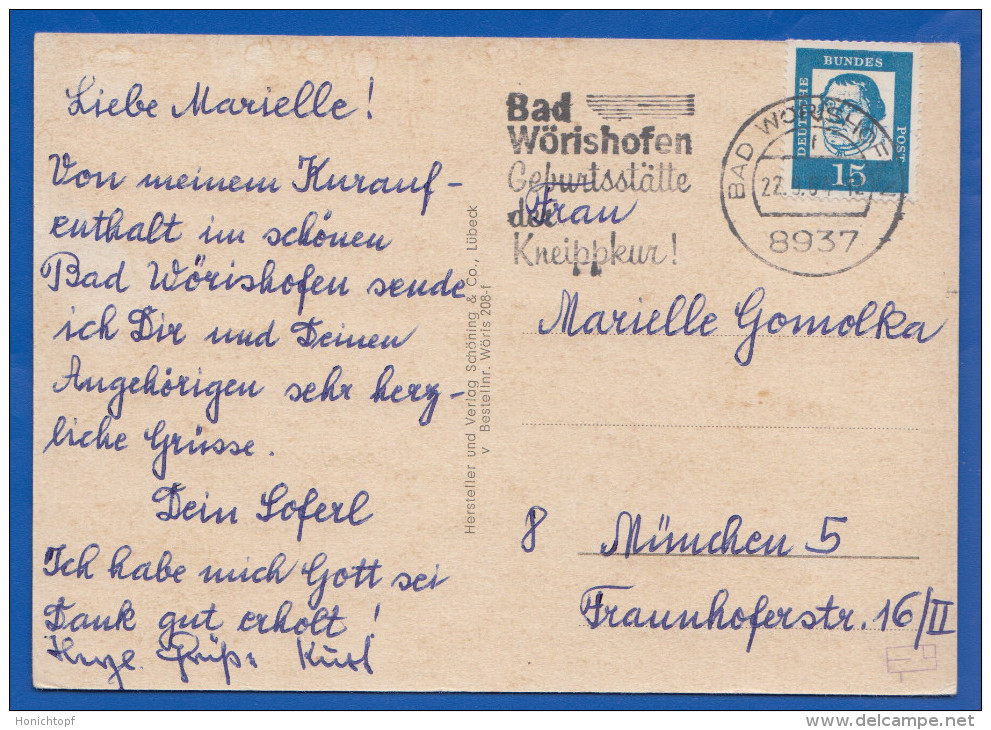 Liebe Marielle!
Von meinem Kurauf-
enthalt im schönen
Bad Wörishofen sende
ich Dir und Deinen
Angehörigen sehr herz-
liche Grüsse.
Dein Soferl
Ich habe mich Gott sei
Dank gut erholt!
Herzl. Grüße Kurt
Hersteller und Verlag Schöning & Co., Lübeck
v Bestellnr. Wöris 208-f
Bad
Wörishofen
Geburtsstätte
der
Kneippkur!
DEUTSCHE
BUNDES
POST
15
BAD WÖRISHOFEN
8937
Frau
Marielle Gomolka
8 München 5
Fraunhoferstr. 16/II
Honichtopf
www.delcampe.net